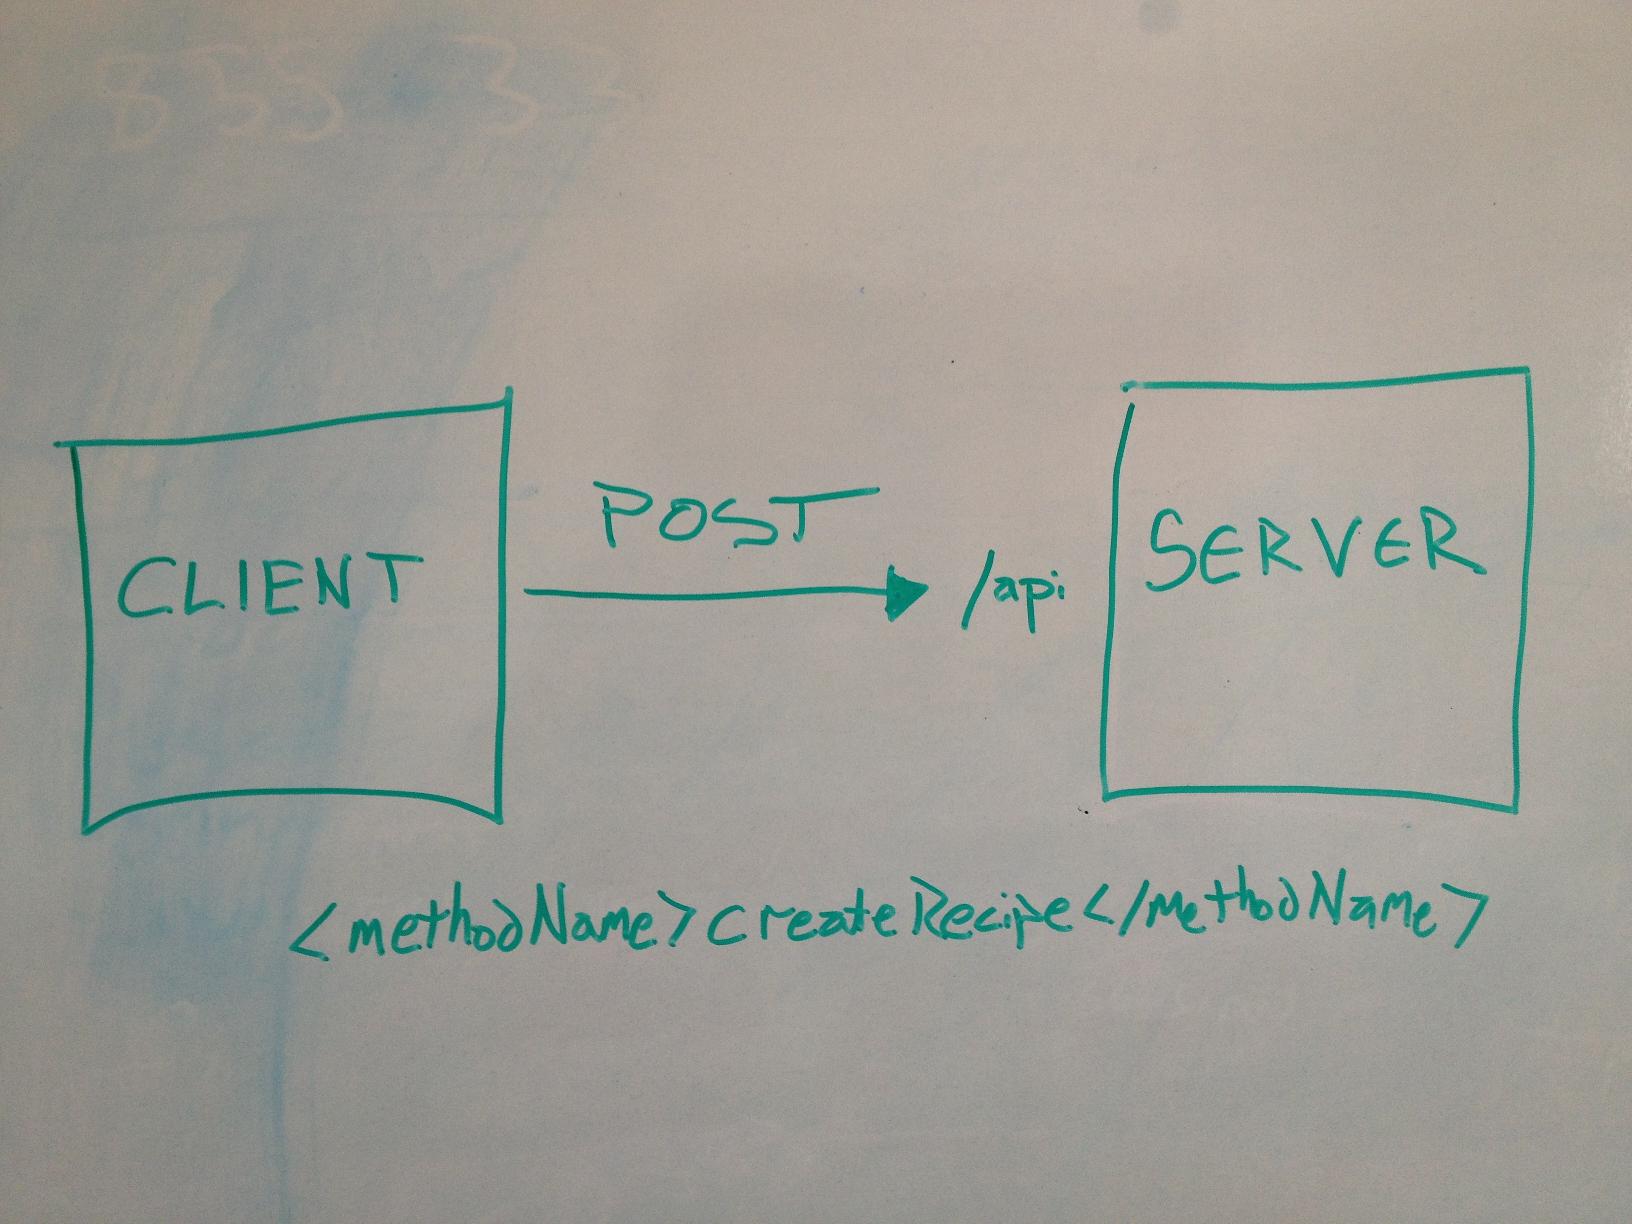 CLIENT
POST
/api
SERVER
<methodName>createRecipe</methodName>